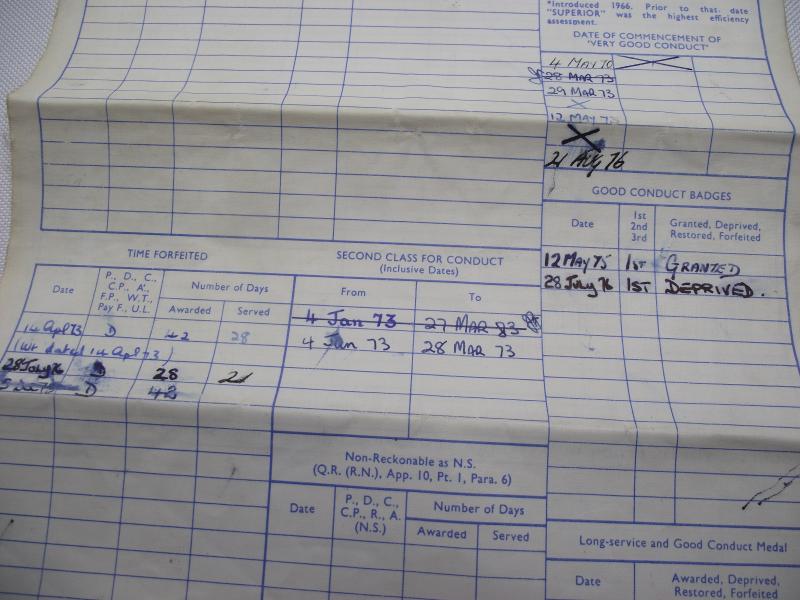 *Introduced 1966. Prior to that date
"SUPERIOR" was the highest efficiency
assessment.
DATE OF COMMENCEMENT OF
'VERY GOOD CONDUCT'
4 MAY 70
28 MAR 73
29 MAR 73
12 MAY 73
21 Aug 76
GOOD CONDUCT BADGES
Date
1st
2nd
3rd
Granted, Deprived,
Restored, Forfeited
12 MAY 75 1ST GRANTED
28 July 76 1ST DEPRIVED.
TIME FORFEITED
Date
P., D., C.,
C.P., A.,
F.P., W.T.,
Pay F., U.L.
Number of Days
Awarded Served
14 Apl 73 D 42 28
(Wt dated 14 Apl 73)
28 July 76 D 28 21
D 42
SECOND CLASS FOR CONDUCT
(Inclusive Dates)
From To
4 Jan 73 27 MAR 83
4 Jan 73 28 MAR 73
Non-Reckonable as N.S.
(Q.R. (R.N.), App. 10, Pt. 1, Para. 6)
Date
P., D., C.,
C.P., R., A.
(N.S.)
Number of Days
Awarded Served
Long-service and Good Conduct Medal
Date
Awarded, Deprived,
Restored, Forfeited